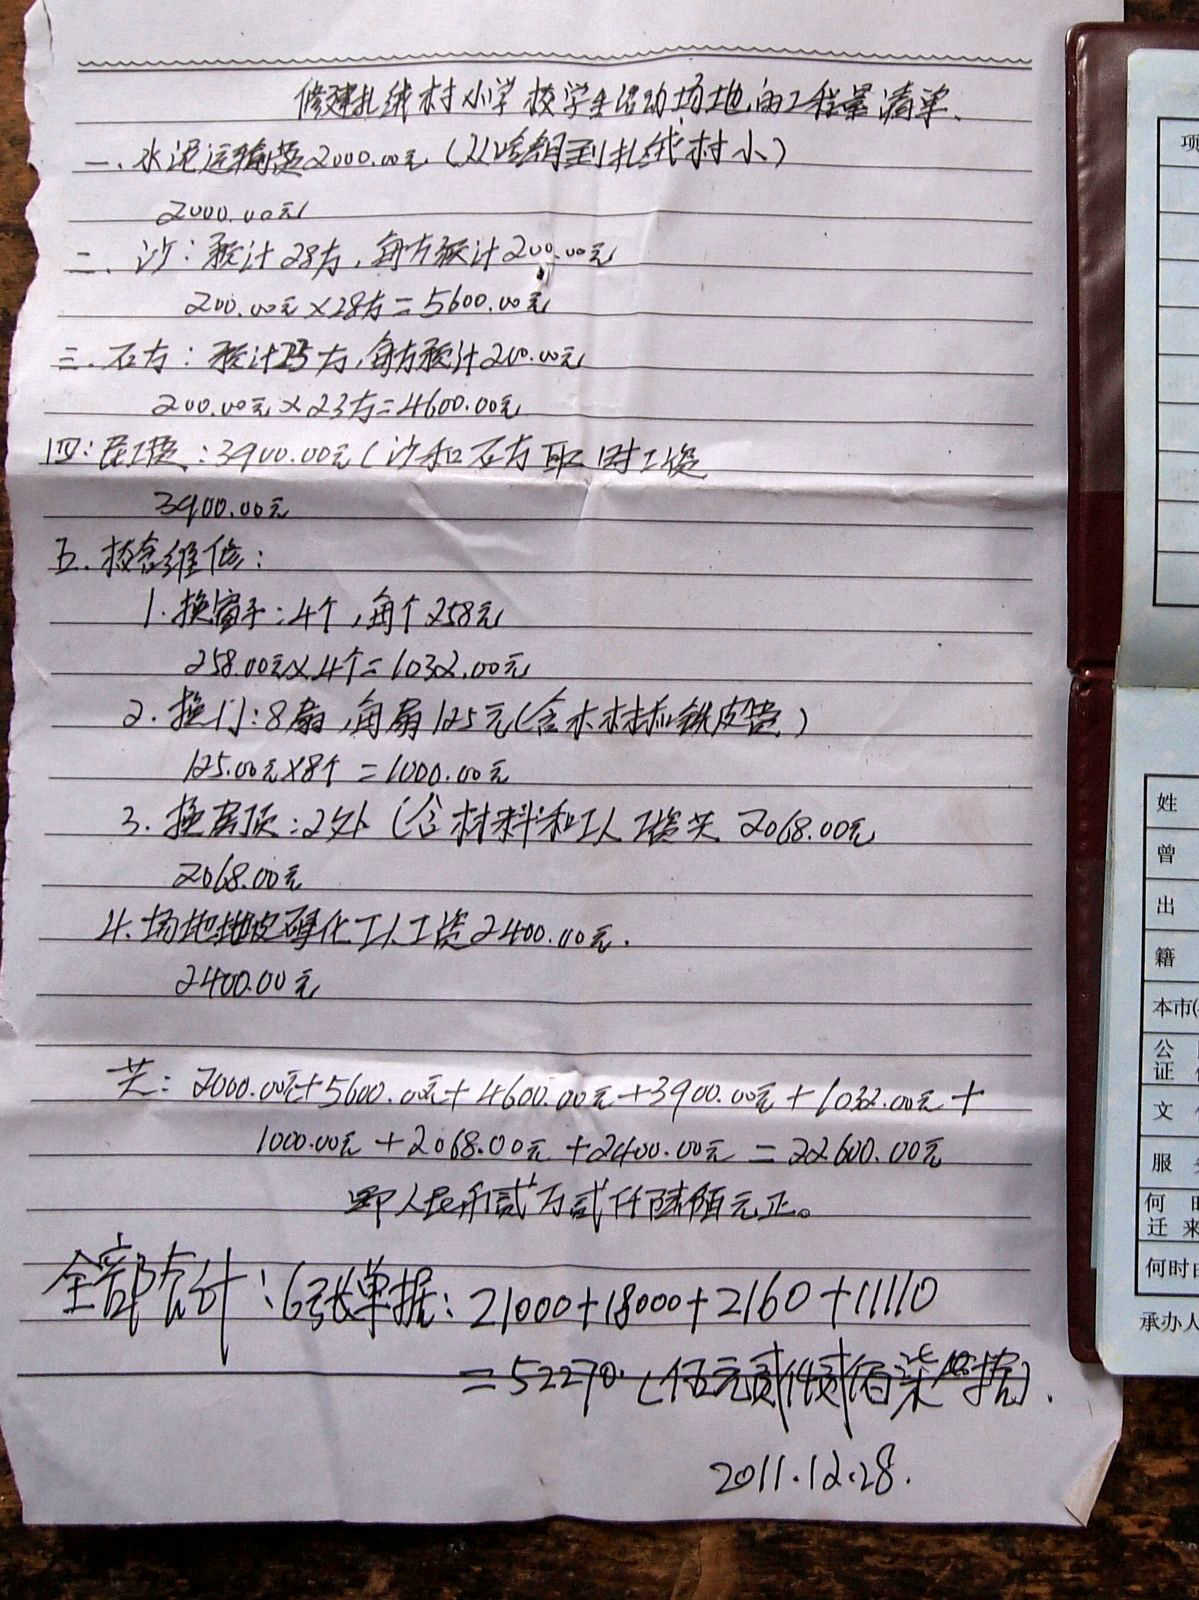 修建扎绒村小学校学生活动场地的工程量清单.
一、水泥运输费2000.00元(从哈铜到扎绒村小)
2000.00元
二、沙:预计28方,每方预计200.00元
200.00元×28方=5600.00元
三、石方:预计23方,每方预计200.00元
200.00元×23方=4600.00元
四:民工费:3900.00元(沙和石方取时工资
3900.00元
五、校舍维修:
1.换窗子:4个,每个258元
258.00元×4个=1032.00元
2.换门:8扇,每扇125元(含木材和铁皮费)
125.00元×8个=1000.00元
3.换房顶:2处(含材料和工人工资共2068.00元
2068.00元
4.场地地皮硬化工人工资2400.00元.
2400.00元
共:2000.00元+5600.00元+4600.00元+3900.00元+1032.00元+
1000.00元+2068.00元+2400.00元=22600.00元
即人民币贰万贰仟陆佰元正。
全部合计:6张单据:21000+18000+2160+11110
=52270.(伍元贰仟贰佰柒
2011.12.28.
项
姓
曾
出
籍
本市(
公
证
文
服
何
迁来
何时由
承办人